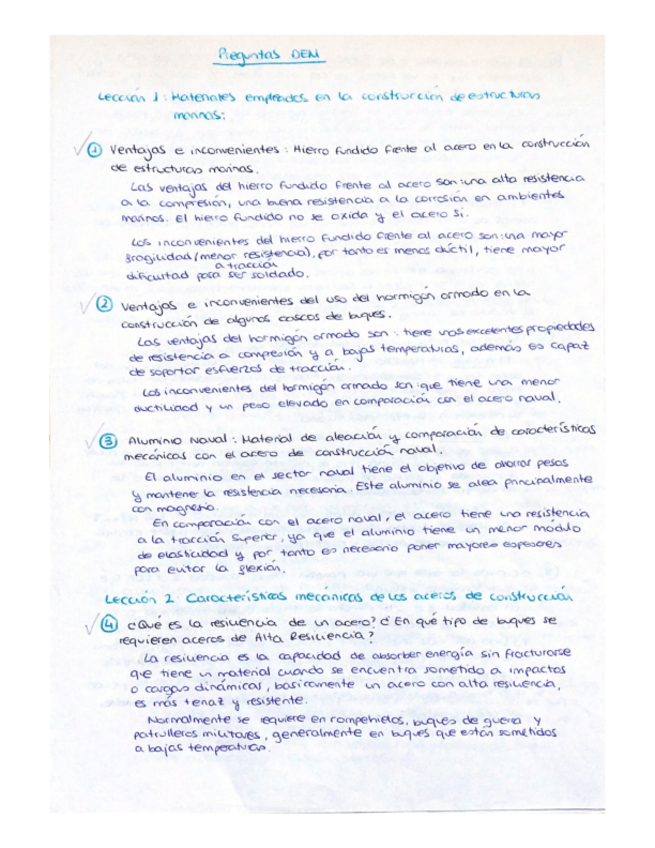 Preguntas DEM
Lección 1: Materiales empleados en la construcción de estructuras
marinas:
① Ventajas e inconvenientes: Hierro fundido frente al acero en la construcción
de estructuras marinas.
Las ventajas del hierro fundido frente al acero son: una alta resistencia
a la compresión, una buena resistencia a la corrosión en ambientes
marinos. El hierro fundido no se oxida y el acero sí.
Los inconvenientes del hierro fundido frente al acero son: una mayor
fragilidad (menor resistencia), por tanto es menos dúctil, tiene mayor
a tracción
dificultad para ser soldado.
② Ventajas e inconvenientes del uso del hormigón armado en la
construcción de algunos cascos de buques.
Las ventajas del hormigón armado son: tiene unas excelentes propiedades
de resistencia a compresión y a bajas temperaturas, además es capaz
de soportar esfuerzos de tracción.
Los inconvenientes del hormigón armado son que tiene una menor
ductilidad y un peso elevado en comparación con el acero naval.
③ Aluminio Naval: Material de aleación y comparación de características
mecánicas con el acero de construcción naval.
El aluminio en el sector naval tiene el objetivo de ahorrar pesos
y mantener la resistencia necesaria. Este aluminio se alea principalmente
con magnesio.
En comparación con el acero naval, el acero tiene una resistencia
a la tracción superior, ya que el aluminio tiene un menor módulo
de elasticidad y por tanto es necesario poner mayores espesores
para evitar la flexión.
Lección 2: Características mecánicas de los aceros de construcción
④ ¿Qué es la resiliencia de un acero? ¿En qué tipo de buques se
requieren aceros de Alta Resiliencia?
La resiliencia es la capacidad de absorber energía sin fracturarse
que tiene un material cuando se encuentra sometido a impactos
o cargas dinámicas, basicamente un acero con alta resiliencia,
es más tenaz y resistente.
Normalmente se requiere en rompehielos, buques de guerra y
patrulleros militares, generalmente en buques que están sometidos
a bajas temperaturas.